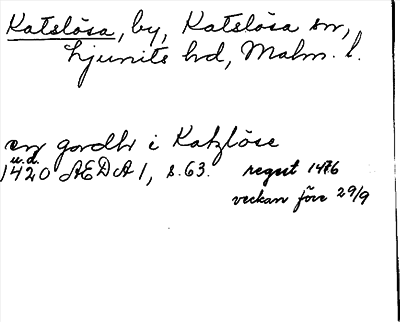 Katslösa, by, Katslösa sn,
Ljunits hd, Malm. l.
en gordh i Katzløse
u.d.
1420 ÆDA 1, s. 63. regest 1476
veckan före 29/9